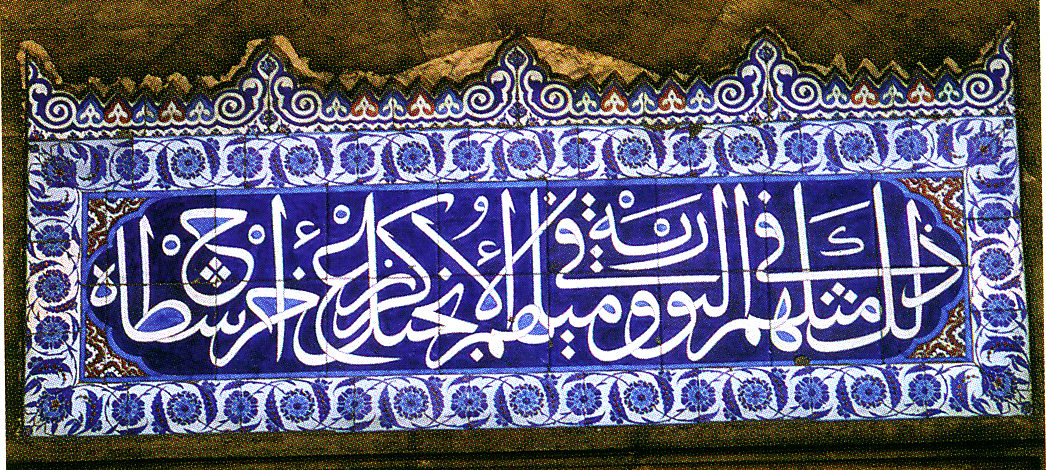 ذلك مثلهم في التورية ومثلهم في الانجيل كزرع اخرج شطاه